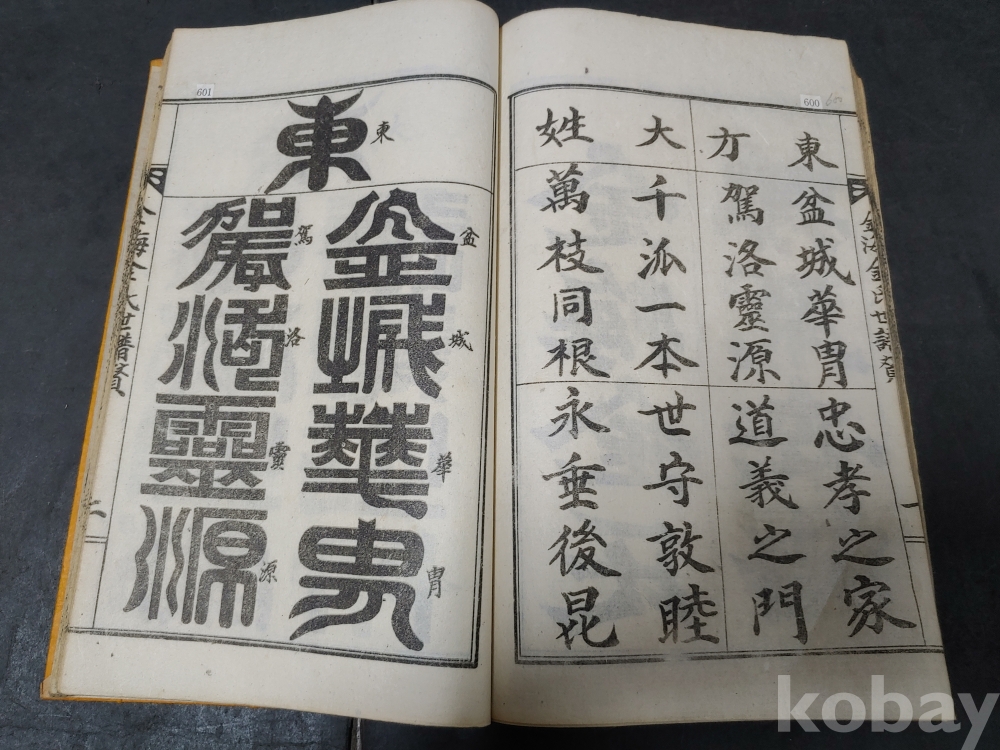 600
金海金氏世譜贊
一
東 盆城華胄 忠孝之家
方 駕洛靈源 道義之門
大 千泒一本 世守敦睦
姓 萬枝同根 永垂後昆
601
東
東
盆城華胄
盆城華胄
駕洛靈源
駕洛靈源
金海金氏世譜贊
二
kobay